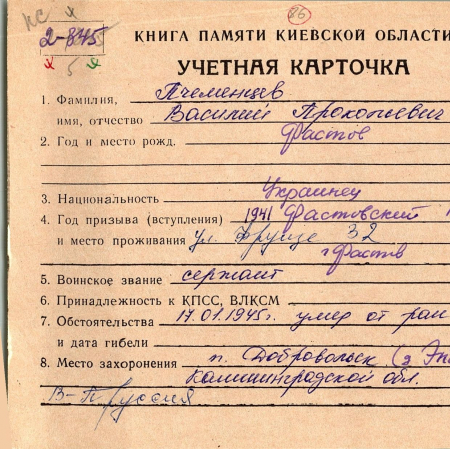 КС
26
2-845
5
КНИГА ПАМЯТИ КИЕВСКОЙ ОБЛАСТИ
УЧЕТНАЯ КАРТОЧКА
1. Фамилия, Пчеменцев
имя, отчество Василий Прокопьевич
2. Год и место рожд. Фастов
3. Национальность Украинец
4. Год призыва (вступления) 1941 Фастовский
и место проживания ул. Фрунзе 32
г Фастів
5. Воинское звание сержант
6. Принадлежность к КПСС, ВЛКСМ
7. Обстоятельства 17.01.1945г. умер от ран
и дата гибели
8. Место захоронения п. Добровольск (з
Калининградской обл.
В-Пруссия